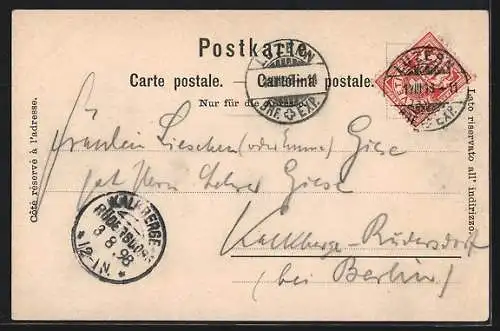 Postkarte.
Carte postale. — Cartolina postale.
Nur für die Adresse.
Côté réservé à l'adresse.
Lato riservato all' indirizzo.
LUZERN
BRF. EXP.
LUZERN
BRF. EXP.
Fräulein Lieschen (oder Emma) Giese
Herrn Lehrer Giese
Kalkberge-Rüdersdorf
(bei Berlin)
KALKBERGE-
RÜDERSDORF
3 8 98
12-1N.